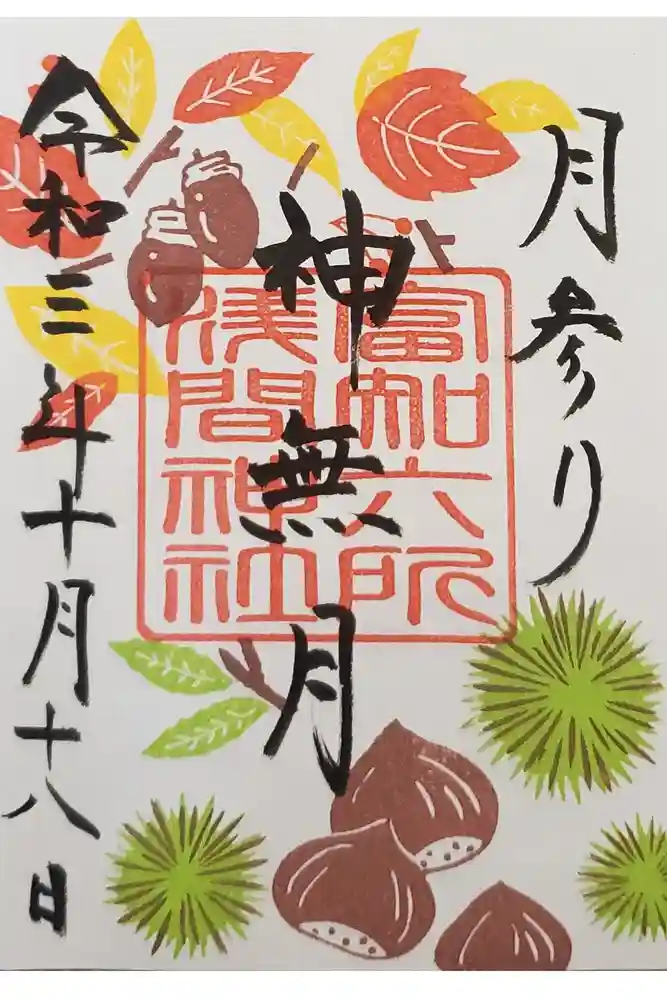 月参り
神無月
富知六所
浅間神社
令和三年十月十八日